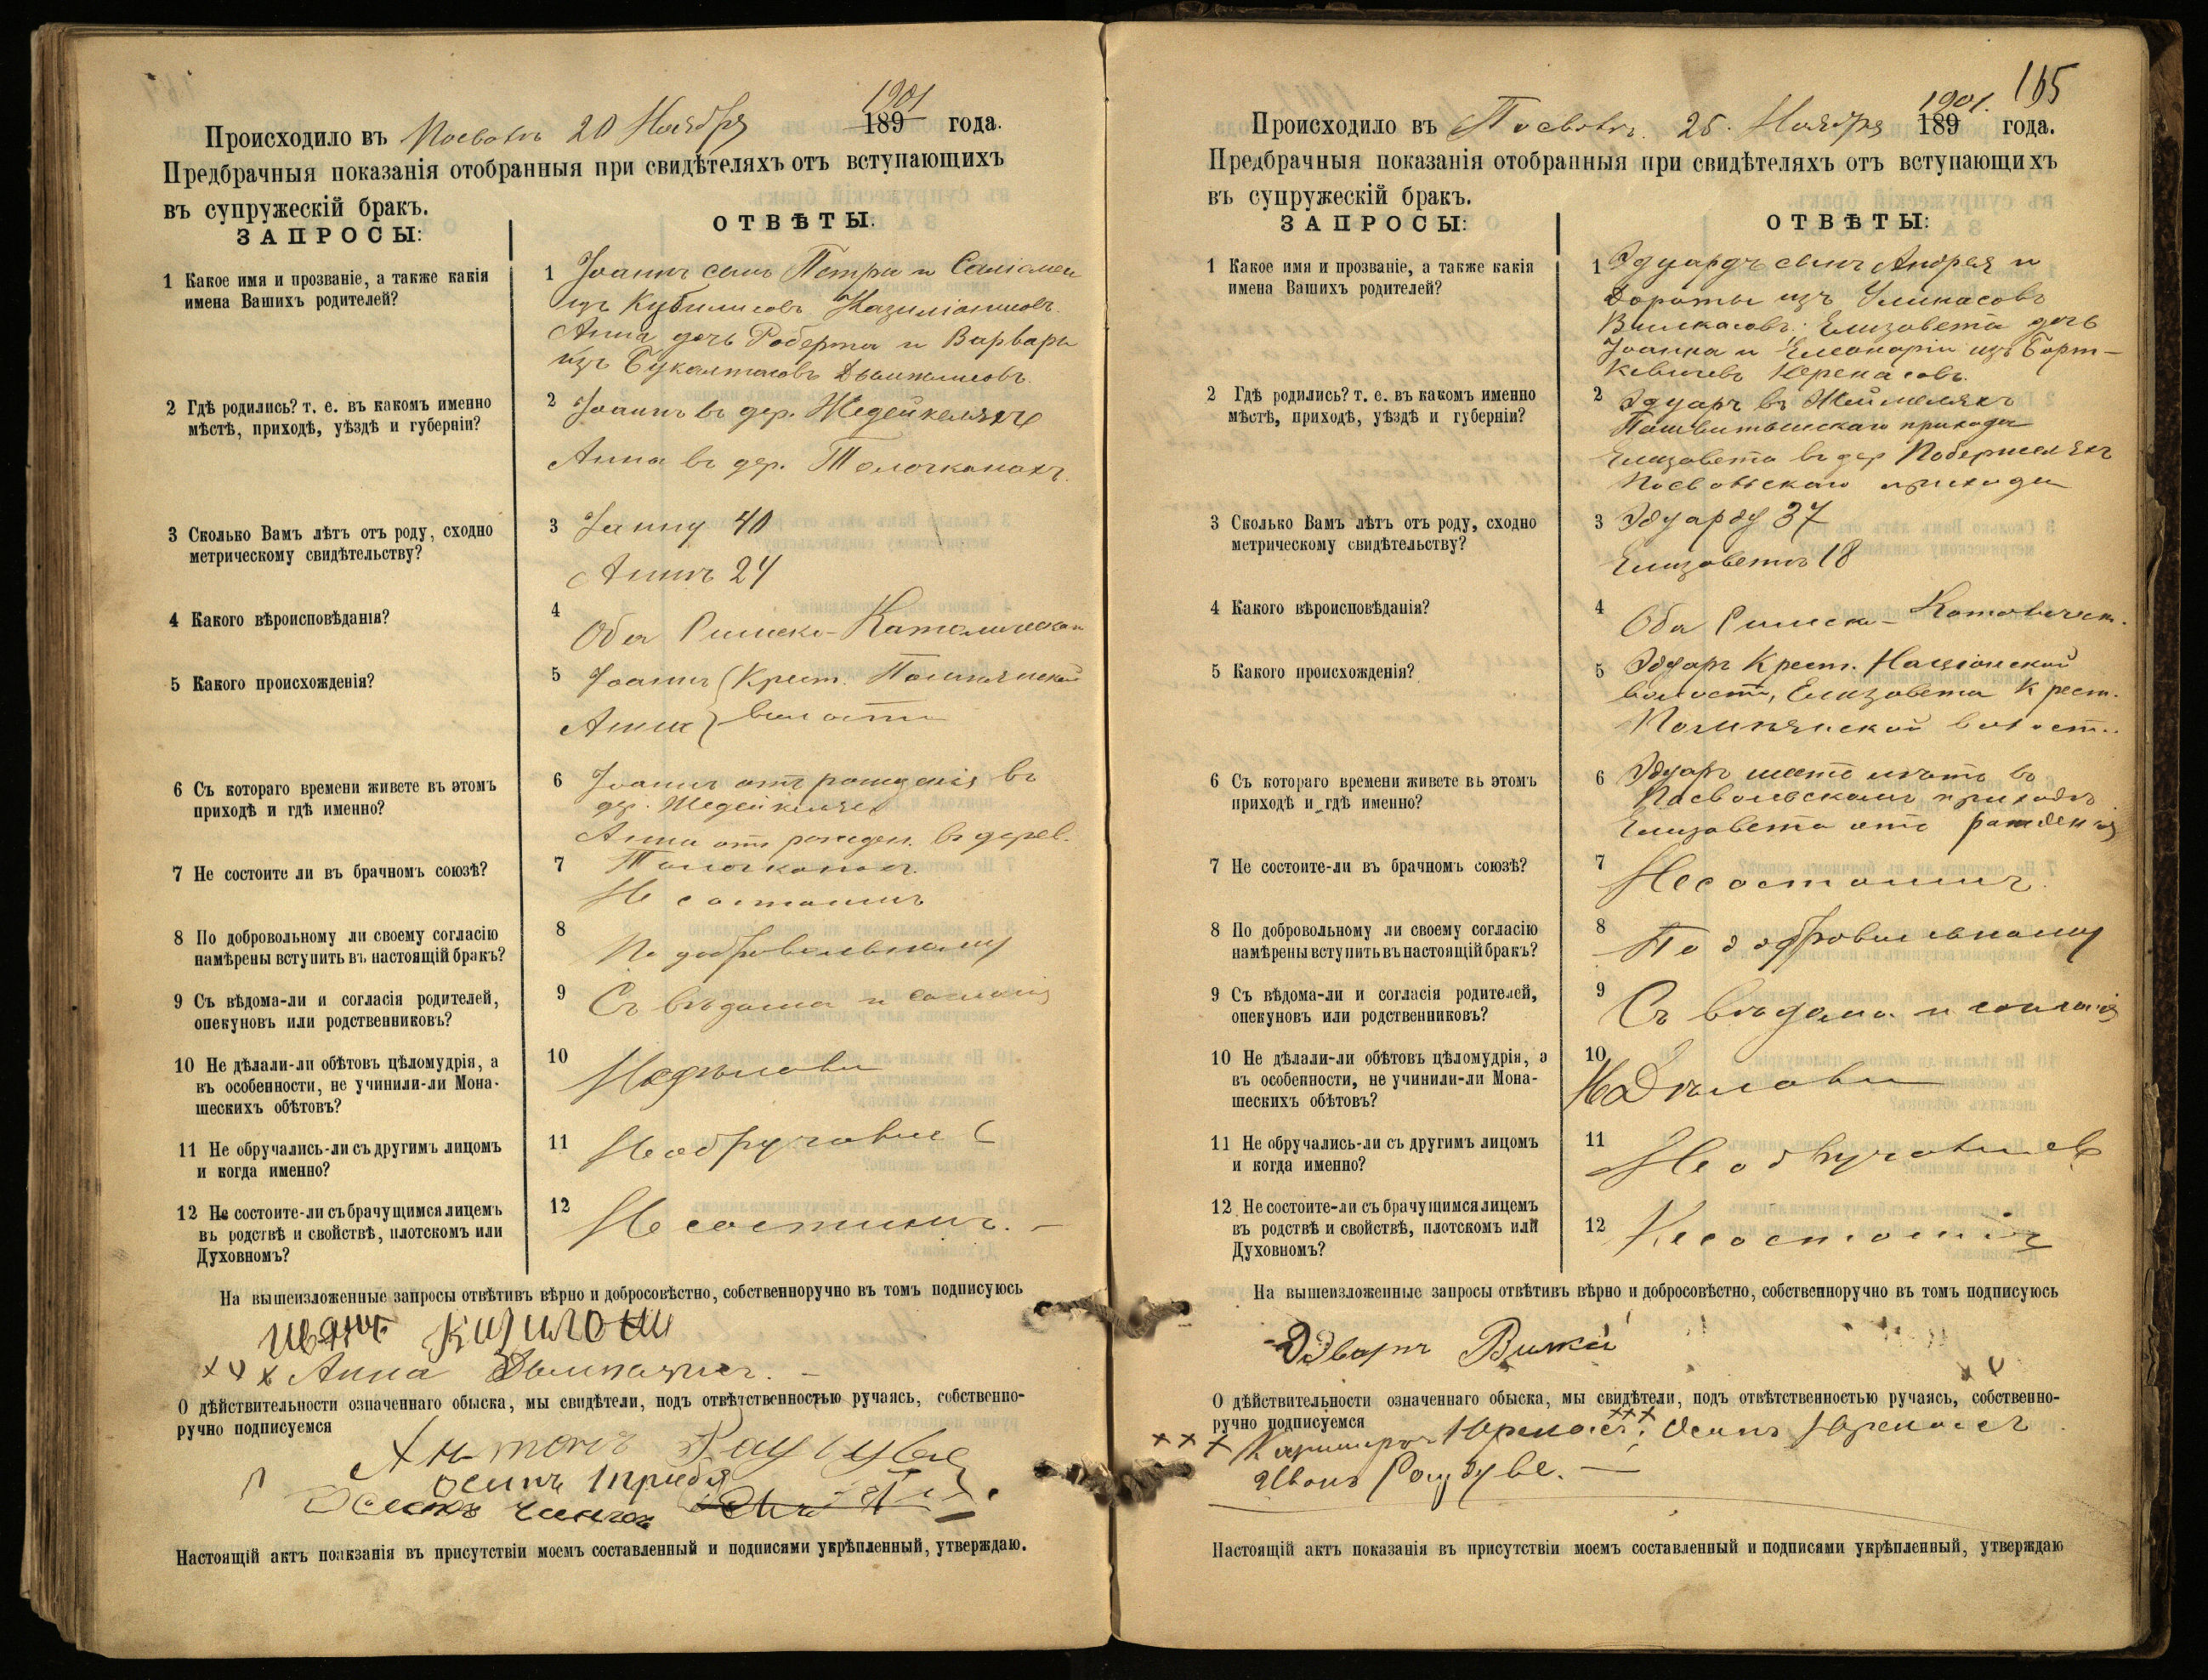 Происходило въ Посволъ 20 Ноября 1901 189 года.
Предбрачныя показанія отобранныя при свидѣтеляхъ отъ вступающихъ
въ супружескій бракъ.
ЗАПРОСЫ:
ОТВѢТЫ:
1 Какое имя и прозваніе, а также какія
имена Вашихъ родителей?
1 Іоаннъ сынъ Петра и
изъ
Анна дочь Роберта и Варвары
изъ
2 Гдѣ родились? т. е. въ какомъ именно
мѣстѣ, приходѣ, уѣздѣ и губерніи?
2 Іоаннъ въ дер. Жедейкеляхъ
Анна въ дер. Толочканахъ.
3 Сколько Вамъ лѣтъ отъ роду, сходно
метрическому свидѣтельству?
3 Іоанну 40
Аннѣ 24
4 Какого вѣроисповѣданія?
4 Оба Римско-Католическ
5 Какого происхожденія?
5 Іоаннъ Крест.
Анна волости
6 Съ котораго времени живете въ этомъ
приходѣ и гдѣ именно?
6 Іоаннъ отъ рожденія въ
дер. Жедейкеляхъ
Анна отъ рожден. въ дерев.
Толочканахъ.
7 Не состоите ли въ брачномъ союзѣ?
7 Не состоимъ
8 По добровольному ли своему согласію
намѣрены вступить въ настоящій бракъ?
8 По добровольному
9 Съ вѣдома-ли и согласія родителей,
опекуновъ или родственниковъ?
9 Съ вѣдома и согласія
10 Не дѣлали-ли обѣтовъ цѣломудрія, а
въ особенности, не учинили-ли Мона-
шескихъ обѣтовъ?
10 Недѣлали
11 Не обручались-ли съ другимъ лицомъ
и когда именно?
11 Необручались
12 Не состоите-ли съ брачущимся лицемъ
въ родствѣ и свойствѣ, плотскомъ или
Духовномъ?
12 Несостоимъ. —
На вышеизложенные запросы отвѣтивъ вѣрно и добросовѣстно, собственноручно въ томъ подписуюсь
Иванъ
x x x Анна
О дѣйствительности означеннаго обыска, мы свидѣтели, подъ отвѣтственностью ручаясь, собственно-
ручно подписуемся
Антонъ
Осипъ
Настоящій актъ поакзанія въ присутствіи моемъ составленный и подписями укрѣпленный, утверждаю.
165
Происходило въ Посволъ. 25. Ноября 1901. 189 года.
Предбрачныя показанія отобранныя при свидѣтеляхъ отъ вступающихъ
въ супружескій бракъ.
ЗАПРОСЫ:
ОТВѢТЫ:
1 Какое имя и прозваніе, а также какія
имена Вашихъ родителей?
1 Эдуардъ сынъ Андрея и
Дороты изъ
Вилкасовъ. Елизавета дочь
Іоанна и Елеонаріи изъ Борт-
кевичевъ Юренасовъ.
2 Гдѣ родились? т. е. въ какомъ именно
мѣстѣ, приходѣ, уѣздѣ и губерніи?
2 Эдуардъ въ
прихода
Елизавета въ дер
Посвольскаго прихода
3 Сколько Вамъ лѣтъ отъ роду, сходно
метрическому свидѣтельству?
3 Эдуарду 37
Елизаветѣ 18
4 Какого вѣроисповѣданія?
4 Оба Римско-Католическ.
5 Какого происхожденія?
5 Эдуардъ Крест.
волости, Елизавета Крест.
волост.
6 Съ котораго времени живете въ этомъ
приходѣ и гдѣ именно?
6 Эдуардъ шесть лѣтъ въ
Посвольскомъ приходѣ
Елизавета отъ рожденія
7 Не состоите-ли въ брачномъ союзѣ?
7 Несостоимъ.
8 По добровольному ли своему согласію
намѣрены вступить въ настоящій бракъ?
8 По добровольному
9 Съ вѣдома-ли и согласія родителей,
опекуновъ или родственниковъ?
9 Съ вѣдома и согласія
10 Не дѣлали-ли обѣтовъ цѣломудрія, а
въ особенности, не учинили-ли Мона-
шескихъ обѣтовъ?
10 Не Дѣлали
11 Не обручались-ли съ другимъ лицомъ
и когда именно?
11 Необручались
12 Не состоите-ли съ брачущимся лицемъ
въ родствѣ и свойствѣ, плотскомъ или
Духовномъ?
12 Несостоимъ
На вышеизложенные запросы отвѣтивъ вѣрно и добросовѣстно, собственноручно въ томъ подписуюсь
О дѣйствительности означеннаго обыска, мы свидѣтели, подъ отвѣтственностью ручаясь, собственно-
ручно подписуемся
x x x Юренасъ, x x x Осипъ Юренасъ
Иванъ —
Настоящій актъ показанія въ присутствіи моемъ составленный и подписями укрѣпленный, утверждаю